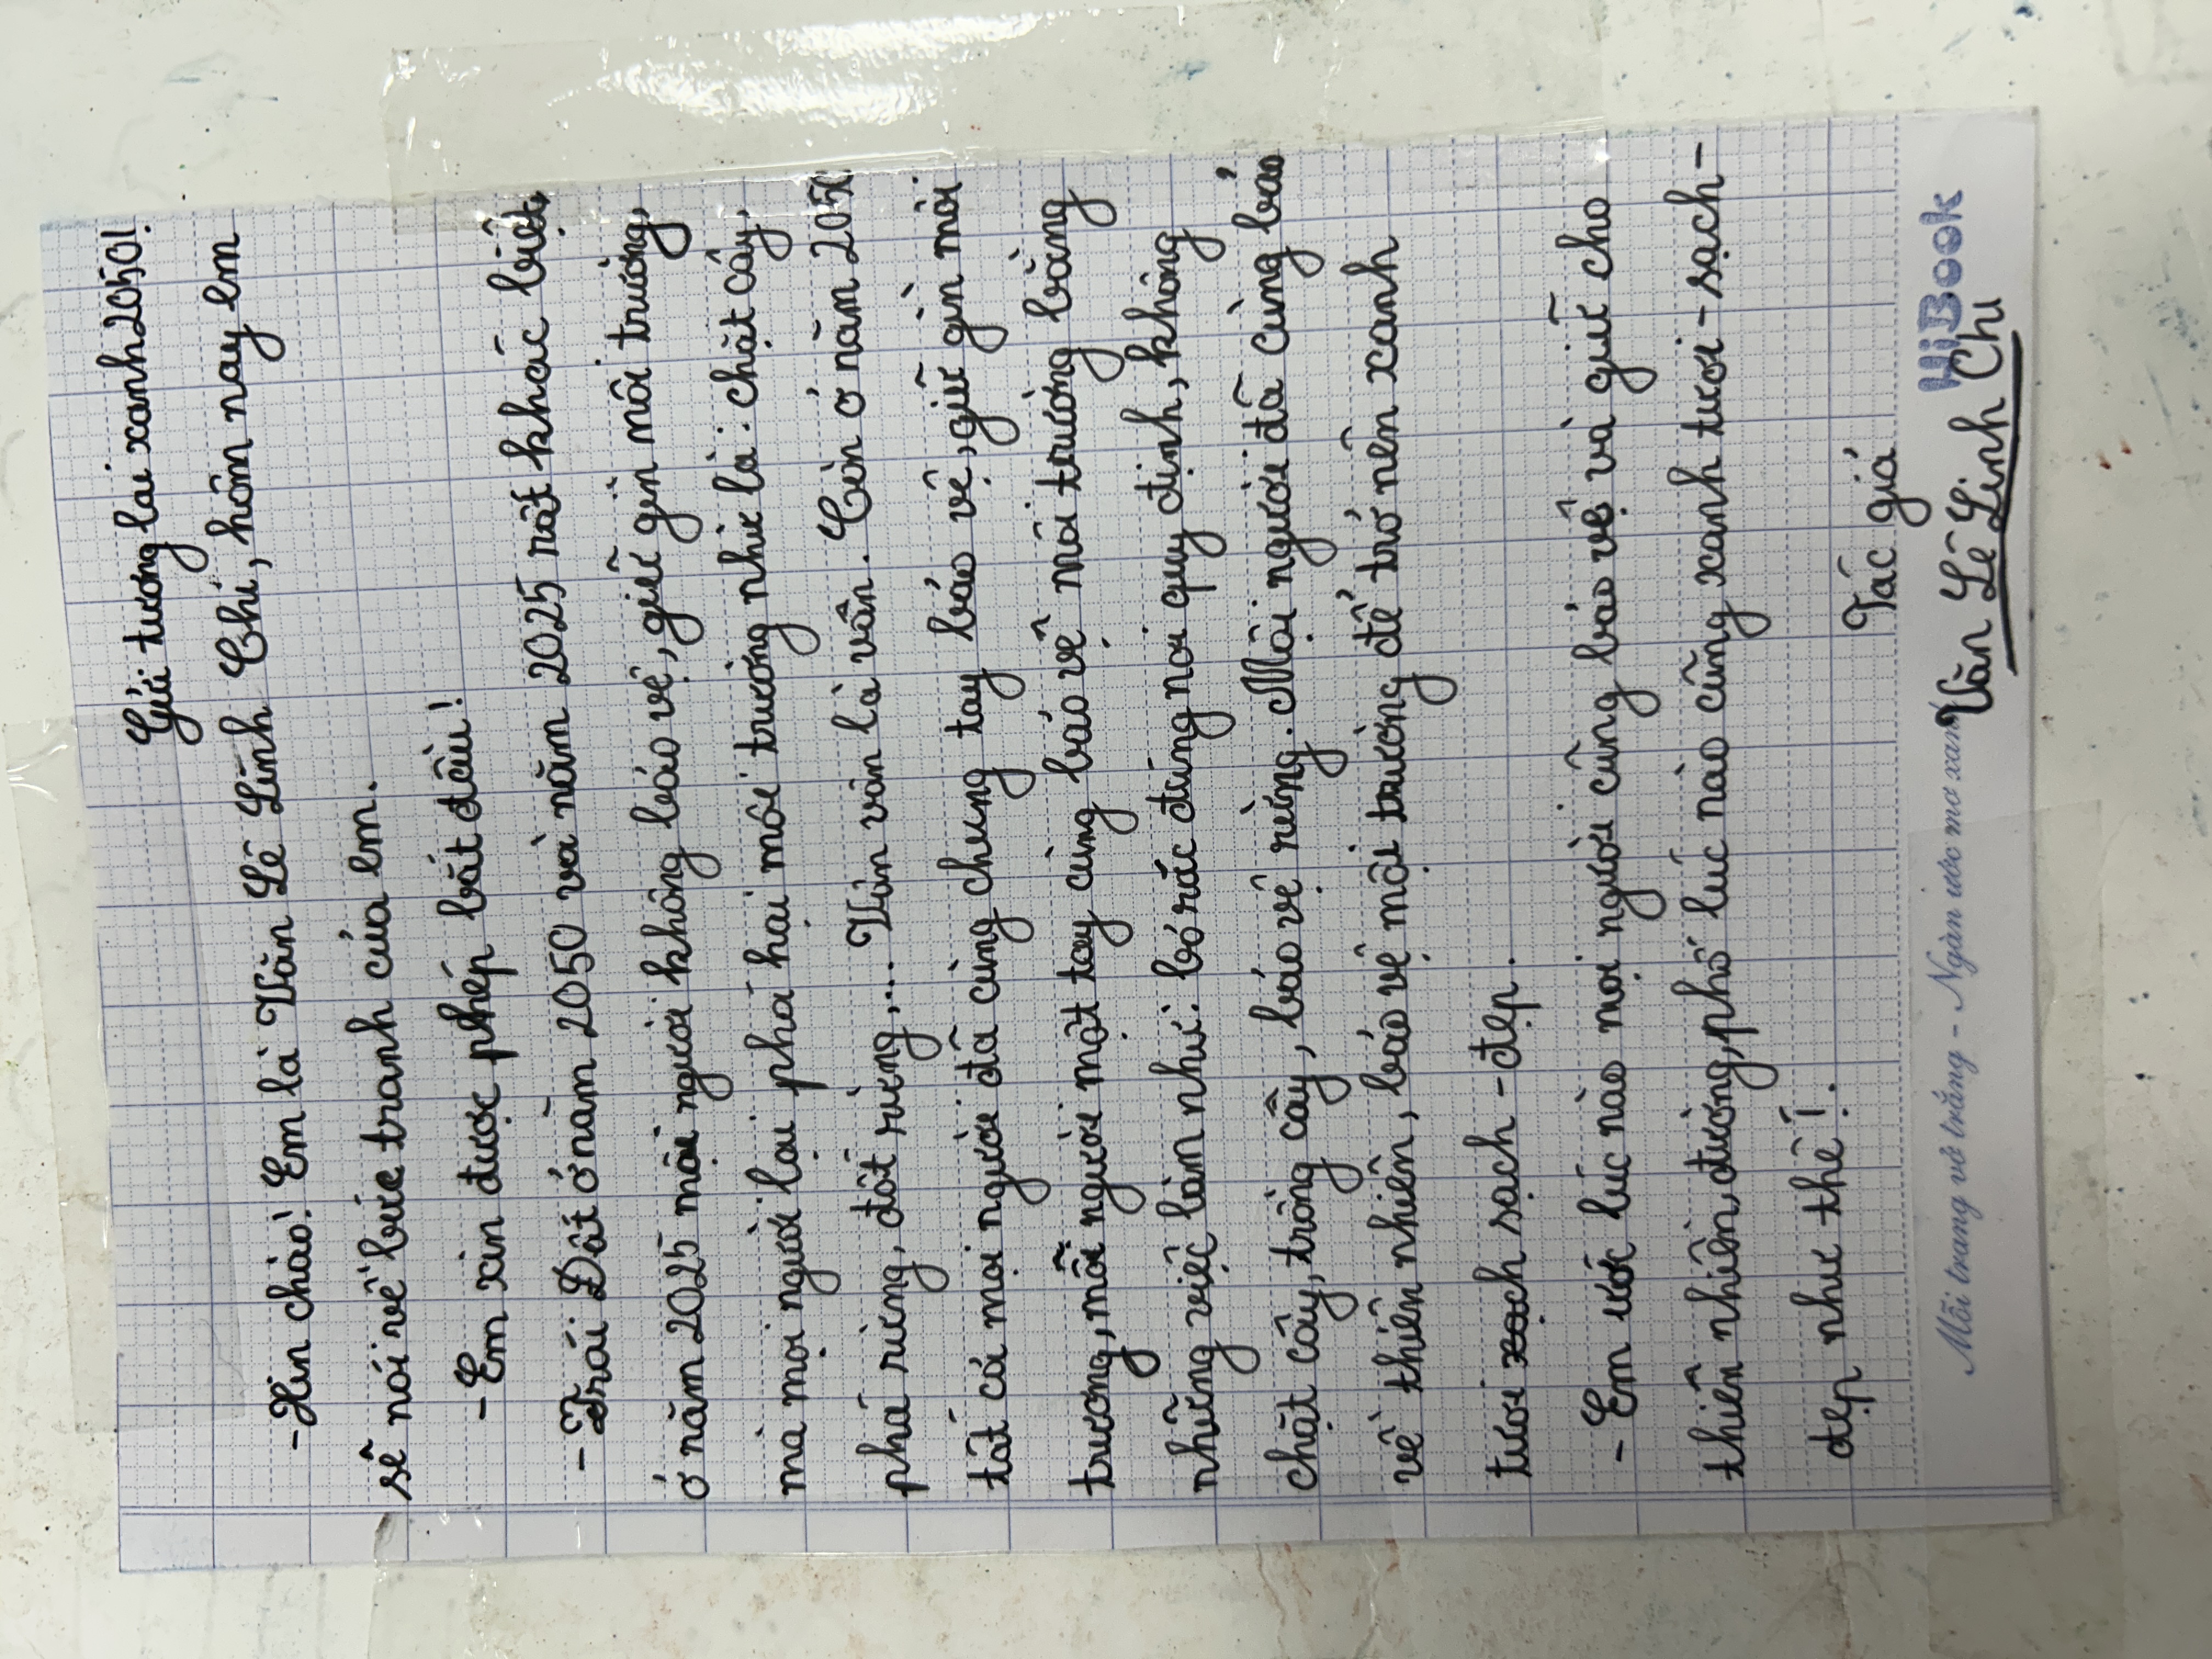 Gửi tương lai xanh 2050!
-Xin chào! Em là Văn Lê Linh Chi, hôm nay em
sẽ nói về bức tranh của em.
- Em xin được phép bắt đầu!
- Trái Đất ở năm 2050 và năm 2025 rất khác biệt,
ở năm 2025 mọi người không bảo vệ, giữ gìn môi trường,
mà mọi người lại phá hại môi trường như là: chặt cây,
phá rừng, đốt rừng,... Vân vân là vân. Còn ở năm 2050
tất cả mọi người đã cùng chung tay bảo vệ, giữ gìn môi
trương, mỗi người một tay cùng bảo vệ môi trường bằng
những việc làm như: bỏ rác đúng nơi quy định, không
chặt cây, trồng cây, bảo vệ rừng. Mọi người đã cùng bảo
vệ thiên nhiên, bảo vệ môi trường để trở nên xanh
tươi sạch - đẹp.
- Em ước lúc nào mọi người cũng bảo vệ và giữ cho
thiên nhiên, đường, phố lúc nào cũng xanh tươi - sạch -
đẹp như thế!.
Tác giả
Mỗi trang vở trắng - Ngàn ước mơ xanh HiBook
Văn Lê Linh Chi